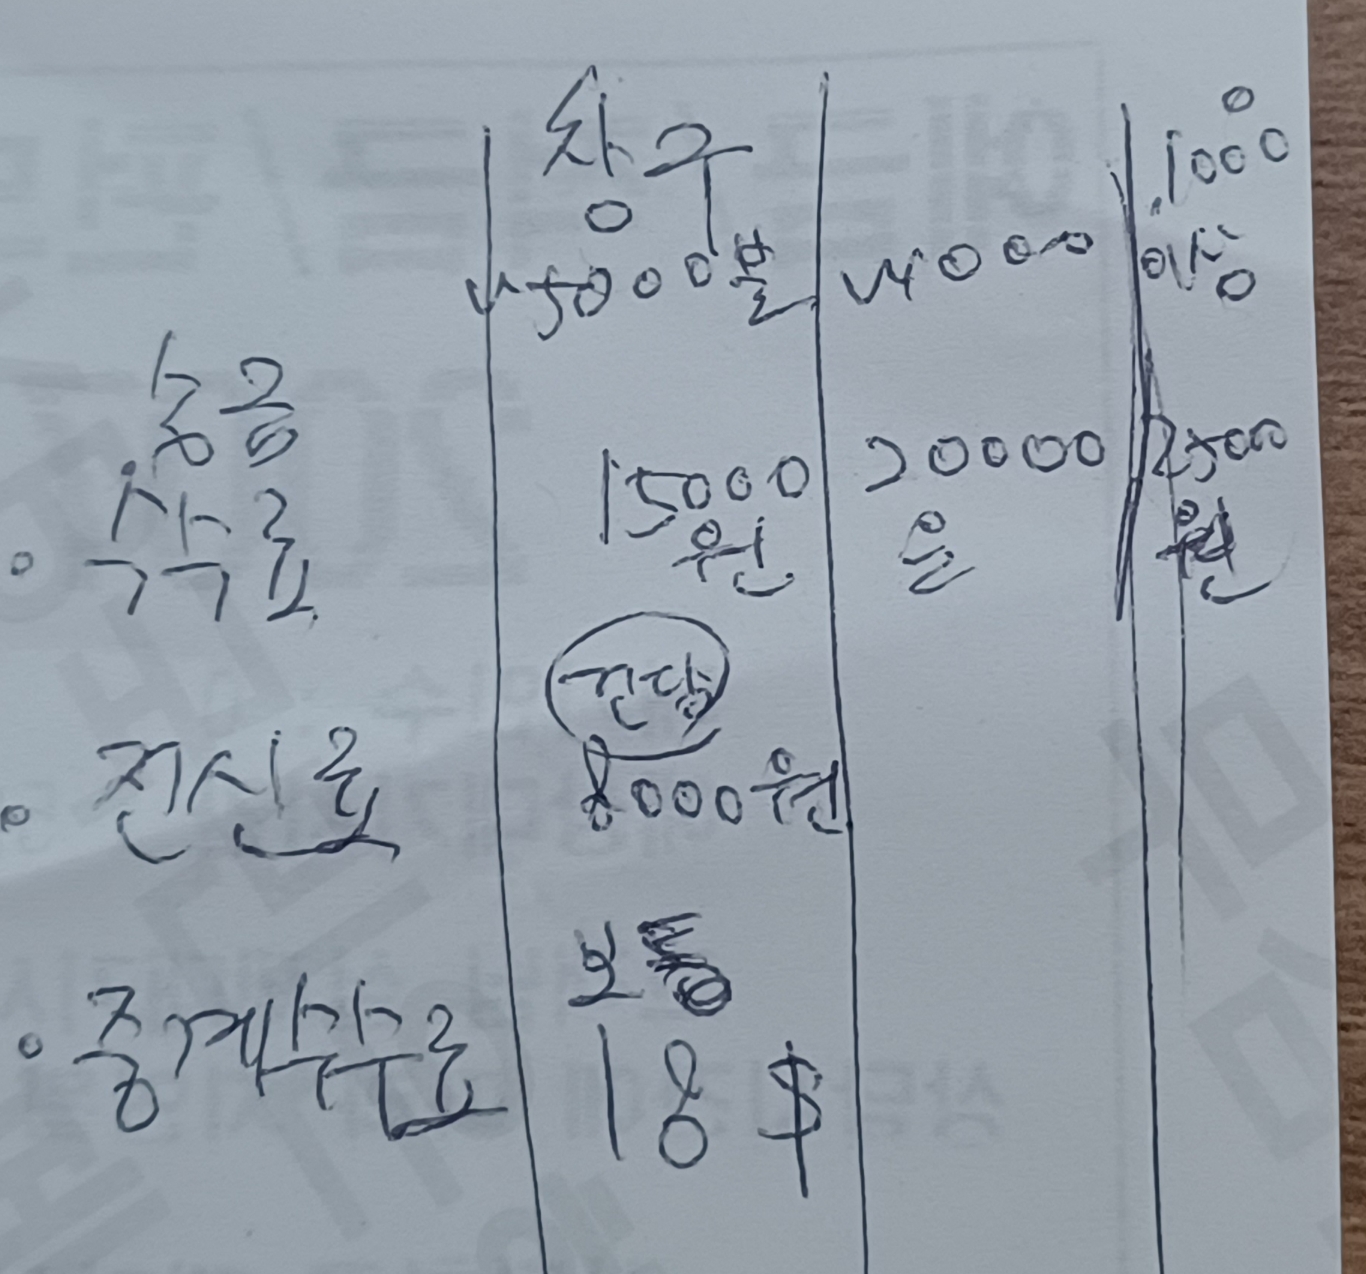 창구
~5000불 ~10000 10000이상
송금
• 수수료 15000원 20000원 25000원
건당
• 전신료 8000원
보통
• 중계수수료 18 $